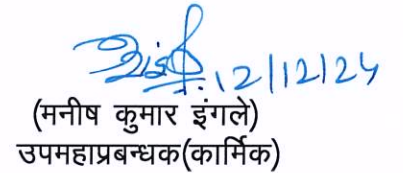 12/12/24
(मनीष कुमार इंगले)
उपमहाप्रबन्धक(कार्मिक)